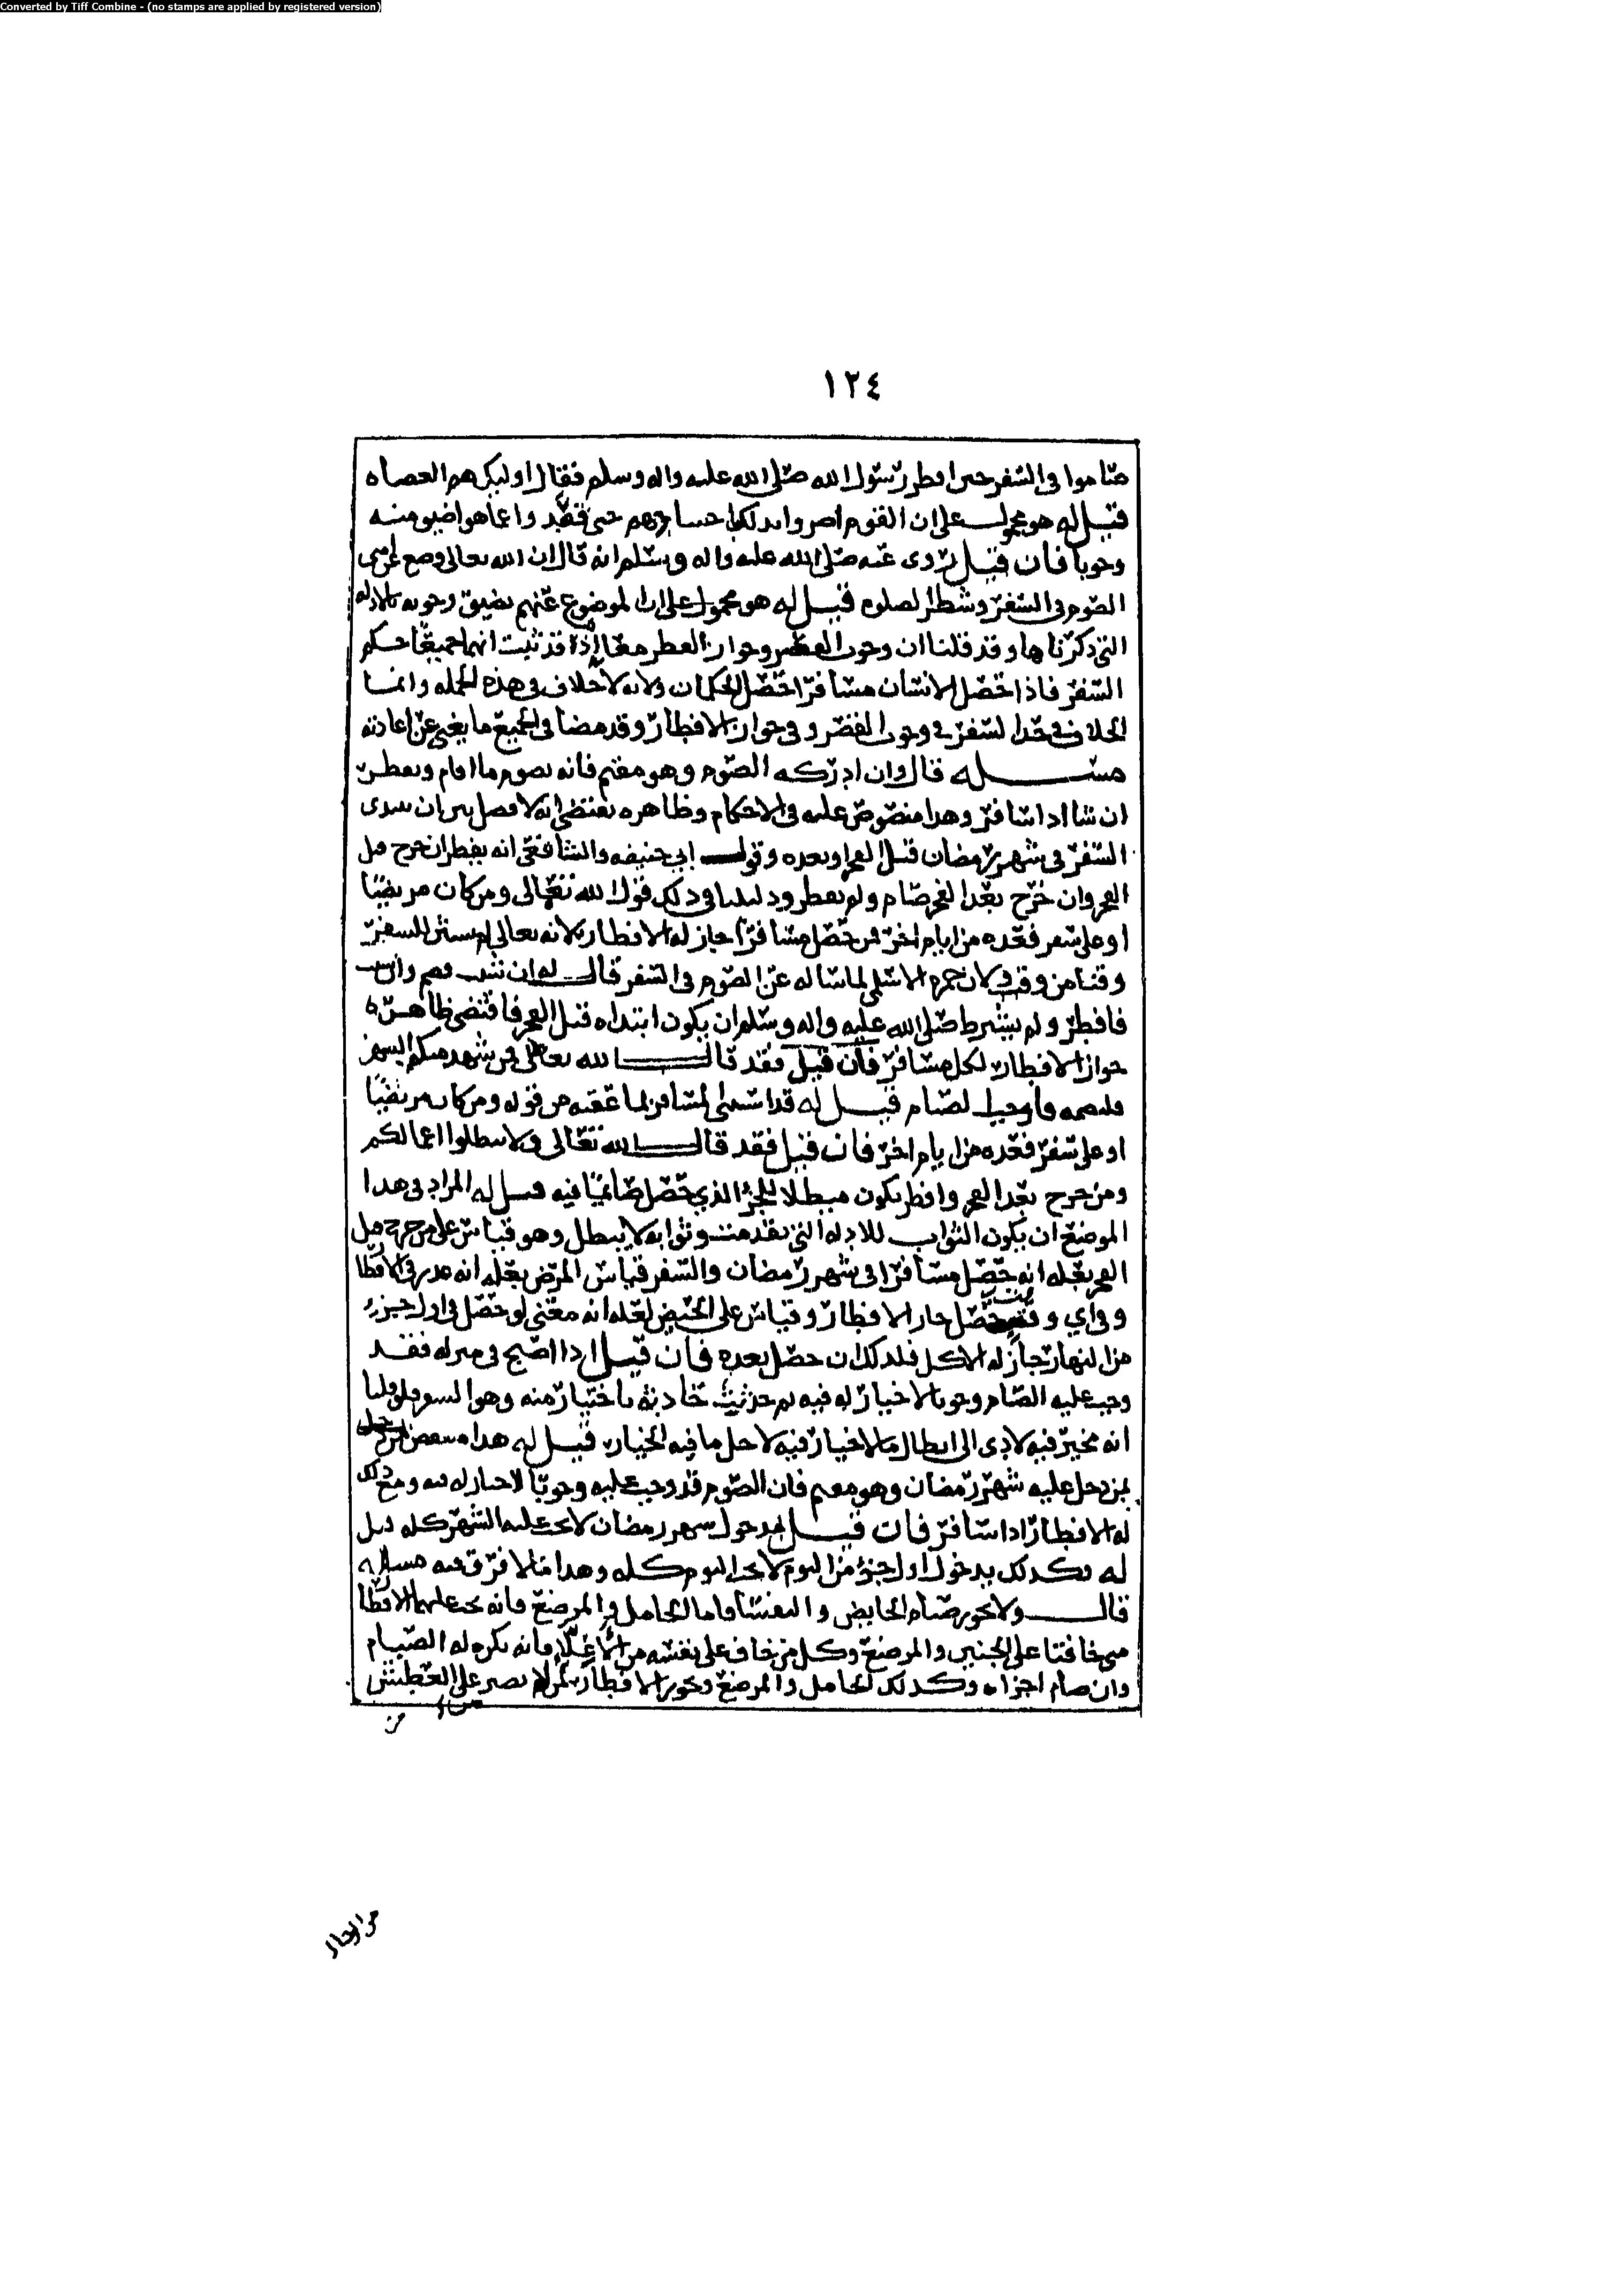 Converted by Tiff Combine - (no stamps are applied by registered version)
١٢٤
صاموا في السفر حين افطر رسول الله صلى الله عليه واله وسلم فقال اوليك هم العصاه
قيل له هو محمول على ان القوم اضر وابدلك احسامهم حتى وانما هو اضيق منه
وجوبا فان قيل روى عنه صلى الله عليه واله وسلم انه قال ان الله تعالى وضع عن امتى
الصوم في السفر وشطر الصلوه قيل له هو محمول على ان الموضوع عنهم تضيق وجوبه بالادله
التي ذكرناها وقد قلنا ان وجوب القصر وجواز الفطر معا اذا قد ثبت انهما جميعا حكم
السفر فاذا حصل الانسان مسافرا حصل الحكمان ولانه لا خلاف في هذه الجمله وانما
الخلاف في حد السفر في وجوب القصر وفي جواز الافطار وقد مضا في الجميع ما يغني عن اعادته
مسئله قال وان ادركه الصوم وهو مقيم فانه يصوم ما اقام ويفطر
ان شا اذا سافر وهذا منصوص عليه في الاحكام وظاهره يقتضي انه لا فصل بين ان يبتدى
السفر في شهر رمضان قبل الفجر او بعده وقول ابي حنيفه والشافعي انه يفطر ان خرج قبل
الفجر وان خرج بعد الفجر صام ولم يفطر ودليلنا في ذلك قول الله تعالى ومن كان مريضا
او على سفر فعده من ايام اخر فمن حصل مسافرا جاز له الافطار لانه تعالى لم يستثن للسفر
وقتا من وقت ولان حمزه الاسلمي لما ساله عن الصوم في السفر قال له ان شئت فصم وان شئت
فافطر ولم يشترط صلى الله عليه واله وسلم ان يكون ابتداه قبل الفجر فاقتضى ظاهره
جواز الافطار لكل مسافر فان قيل فقد قال الله تعالى فمن شهد منكم الشهر
فليصمه فاوجب الصيام قيل له قد استثنى المسافر بما عقبه من قوله ومن كان مريضا
او على سفر فعده من ايام اخر فان قيل فقد قال الله تعالى ولا تبطلوا اعمالكم
ومن خرج بعد الفجر وافطر يكون مبطلا للجزء الذي حصل صائما فيه قيل له المراد في هذا
الموضع ان يكون الثواب للادله التي تقدمت وثوابه لا يبطل وهو قياس على من خرج قبل
الفجر بعله انه حصل مسافرا في شهر رمضان والسفر قياس المرض بعله انه عذر في الافطار
وفي اي وقت حصل جاز الافطار وقياس على الحيض لعله انه معنى لو حصل في اول جزء
من النهار جاز له الاكل فلذلك ان حصل بعده فان قيل اذا اصبح في منزله فقد
وجب عليه الصيام وجوبا لا خيار له فيه ثم حدثت حادثه باختيار منه وهو السفر فلو قلنا
انه مخير فيه لادى الى ابطال ما لا خيار فيه لاجل ما فيه الخيار قيل له هذا منتقض
بمن دخل عليه شهر رمضان وهو مقيم فان الصوم قد وجب عليه وجوبا لا خيار له فيه ومع ذلك
له الافطار اذا سافر فان قيل بدخول شهر رمضان لا يجب عليه الشهر كله قيل
له وكذلك بدخول اول جزء من اليوم لا يجب اليوم كله وهذا مما لا فرق فيه مسئله
قال ولا يجوز صيام الحايض والنفسا فاما الحامل والمرضع فانه يجب عليهما الافطار
متى خافتا على الجنين والمرضع وكل من خاف على نفسه من فانه يكره له الصيام
وان صام اجزاه وكذلك الحامل والمرضع ويجوز الافطار لمن لا يصبر على العطش
من